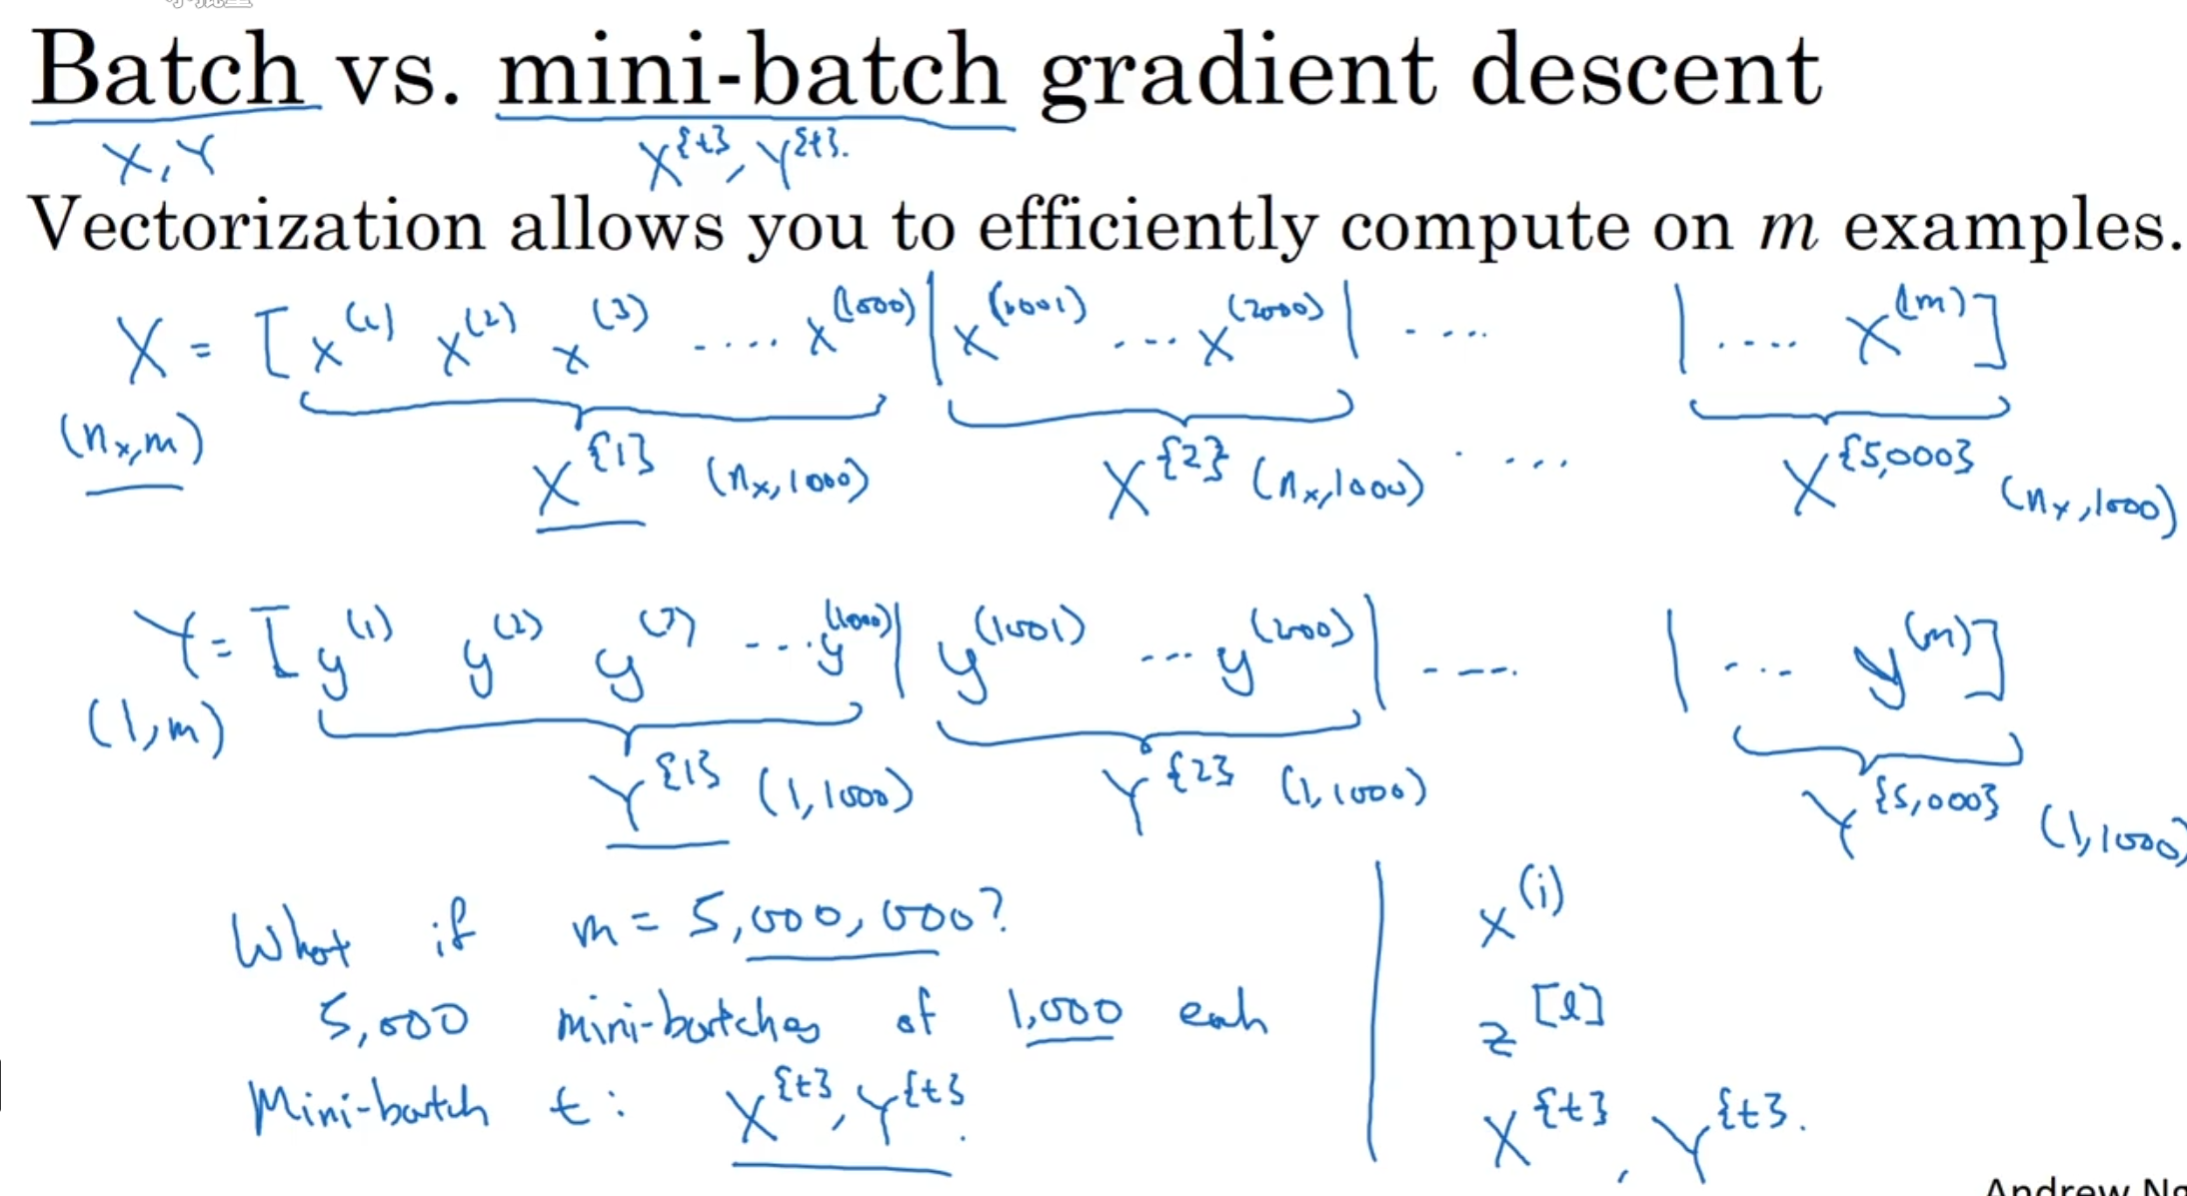 Batch vs. mini-batch gradient descent
X, Y X^{t}, Y^{t}.
Vectorization allows you to efficiently compute on m examples.
X = [x^(1) x^(2) x^(3) ..... x^(1000) | x^(1001) ... x^(2000) | .... | .... x^(m)]
(n_x, m) X^{1} (n_x, 1000) X^{2} (n_x, 1000) .... X^{5,000} (n_x, 1000)
Y = [y^(1) y^(2) y^(3) ... y^(1000) | y^(1001) ... y^(2000) | .... | ... y^(m)]
(1, m) Y^{1} (1, 1000) Y^{2} (1, 1000) Y^{5,000} (1, 1000)
What if m = 5,000,000?
5,000 mini-batches of 1,000 each
Mini-batch t: X^{t}, Y^{t}.
x^(i)
z^[l]
X^{t}, Y^{t}.
Andrew Ng